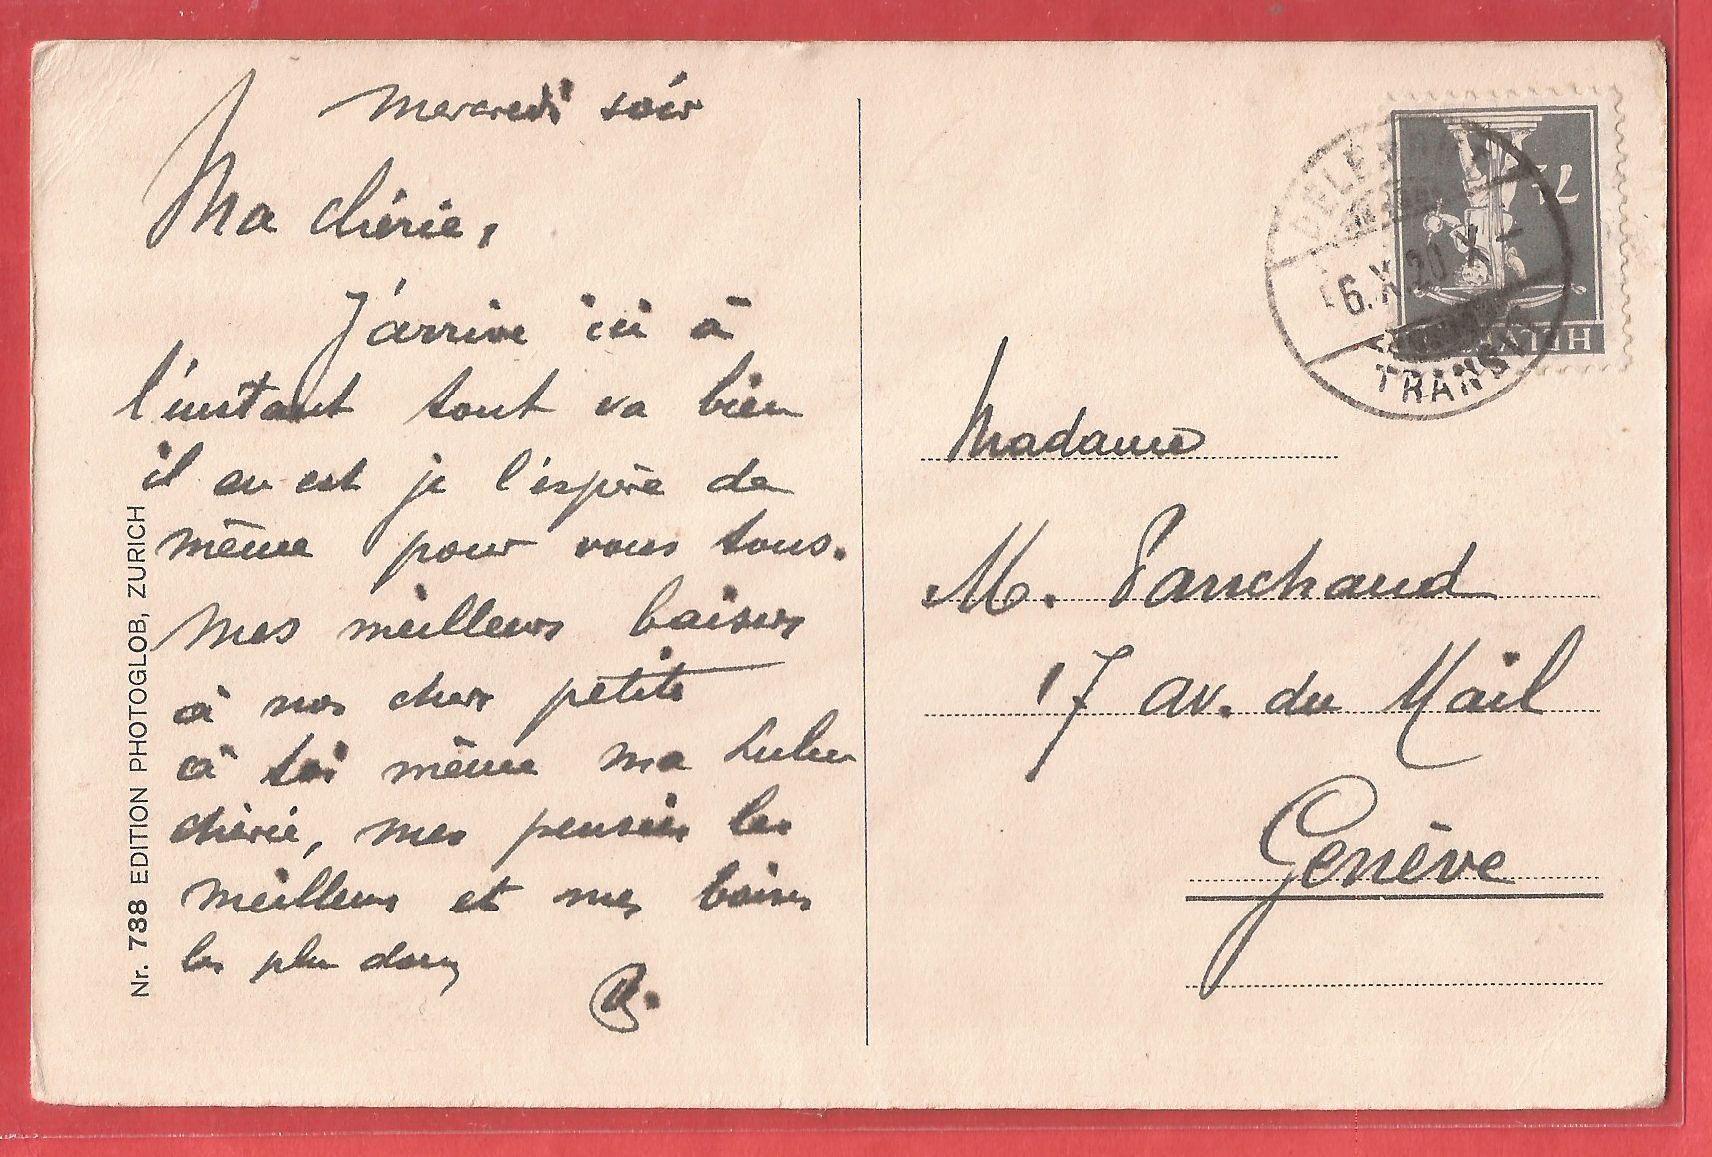 Mercredi soir
Ma chérie,
J'arrive ici à
l'instant tout va bien
il en est je l'espère de
même pour vous tous.
Mes meilleurs baisers
à nos chers petits
à toi même ma Lulu
chérie, mes pensées les
meilleurs et mes baisers
les plus doux
Nr. 738 EDITION PHOTOGLOB, ZURICH
TRANSIT
6.X.20.X
7½
HELVETIA
Madame
M. Parschaud
17 av. du Mail
Genève